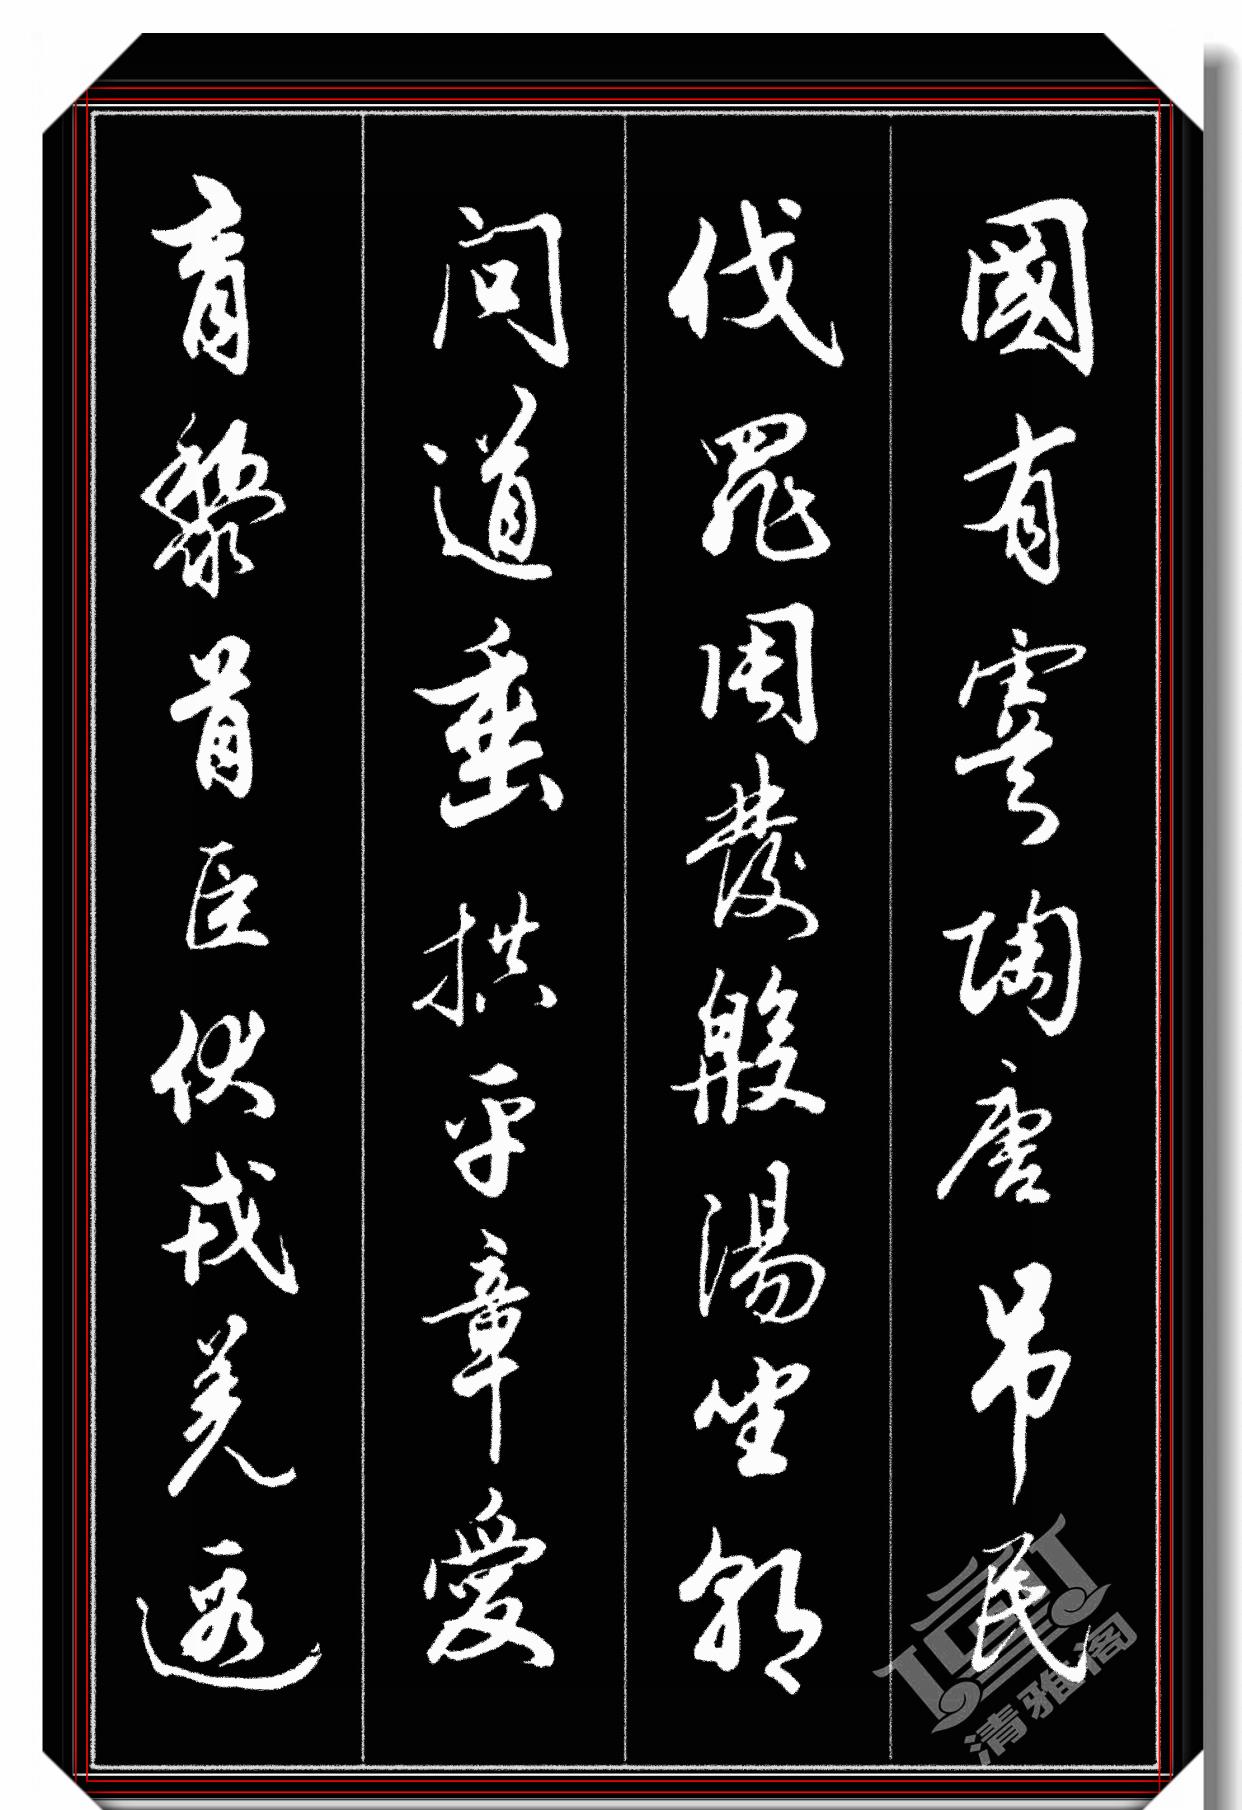 國有虞陶唐吊民
伐罪周發殷湯坐朝
問道垂拱平章愛
育黎首臣伏戎羌遐
清雅阁